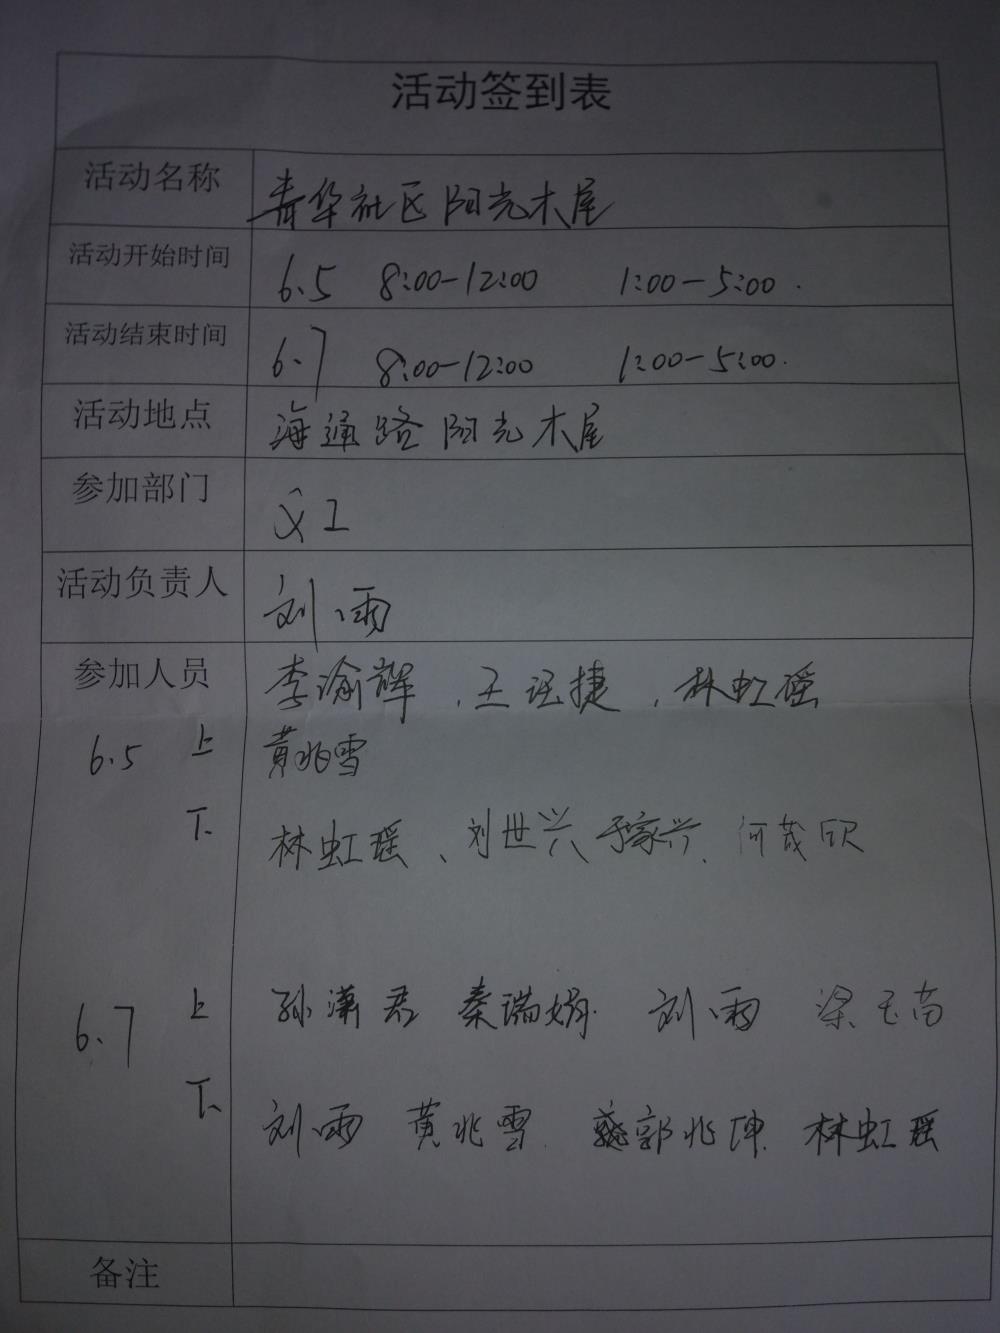 活动签到表
活动名称 青华社区阳光木屋
活动开始时间 6.5 8:00-12:00 1:00-5:00.
活动结束时间 6.7 8:00-12:00 1:00-5:00.
活动地点 海通路阳光木屋
参加部门 义工
活动负责人 刘雨
参加人员 李渝辉、王 捷、林虹瑶
6.5 上 黄兆雪
下 林虹瑶、刘世兴 于家兴、何茂欣
6.7 上 孙潇君 秦瑞娟 刘雨 梁玉苗
下 刘雨 黄兆雪 郭兆坤 林虹瑶
备注